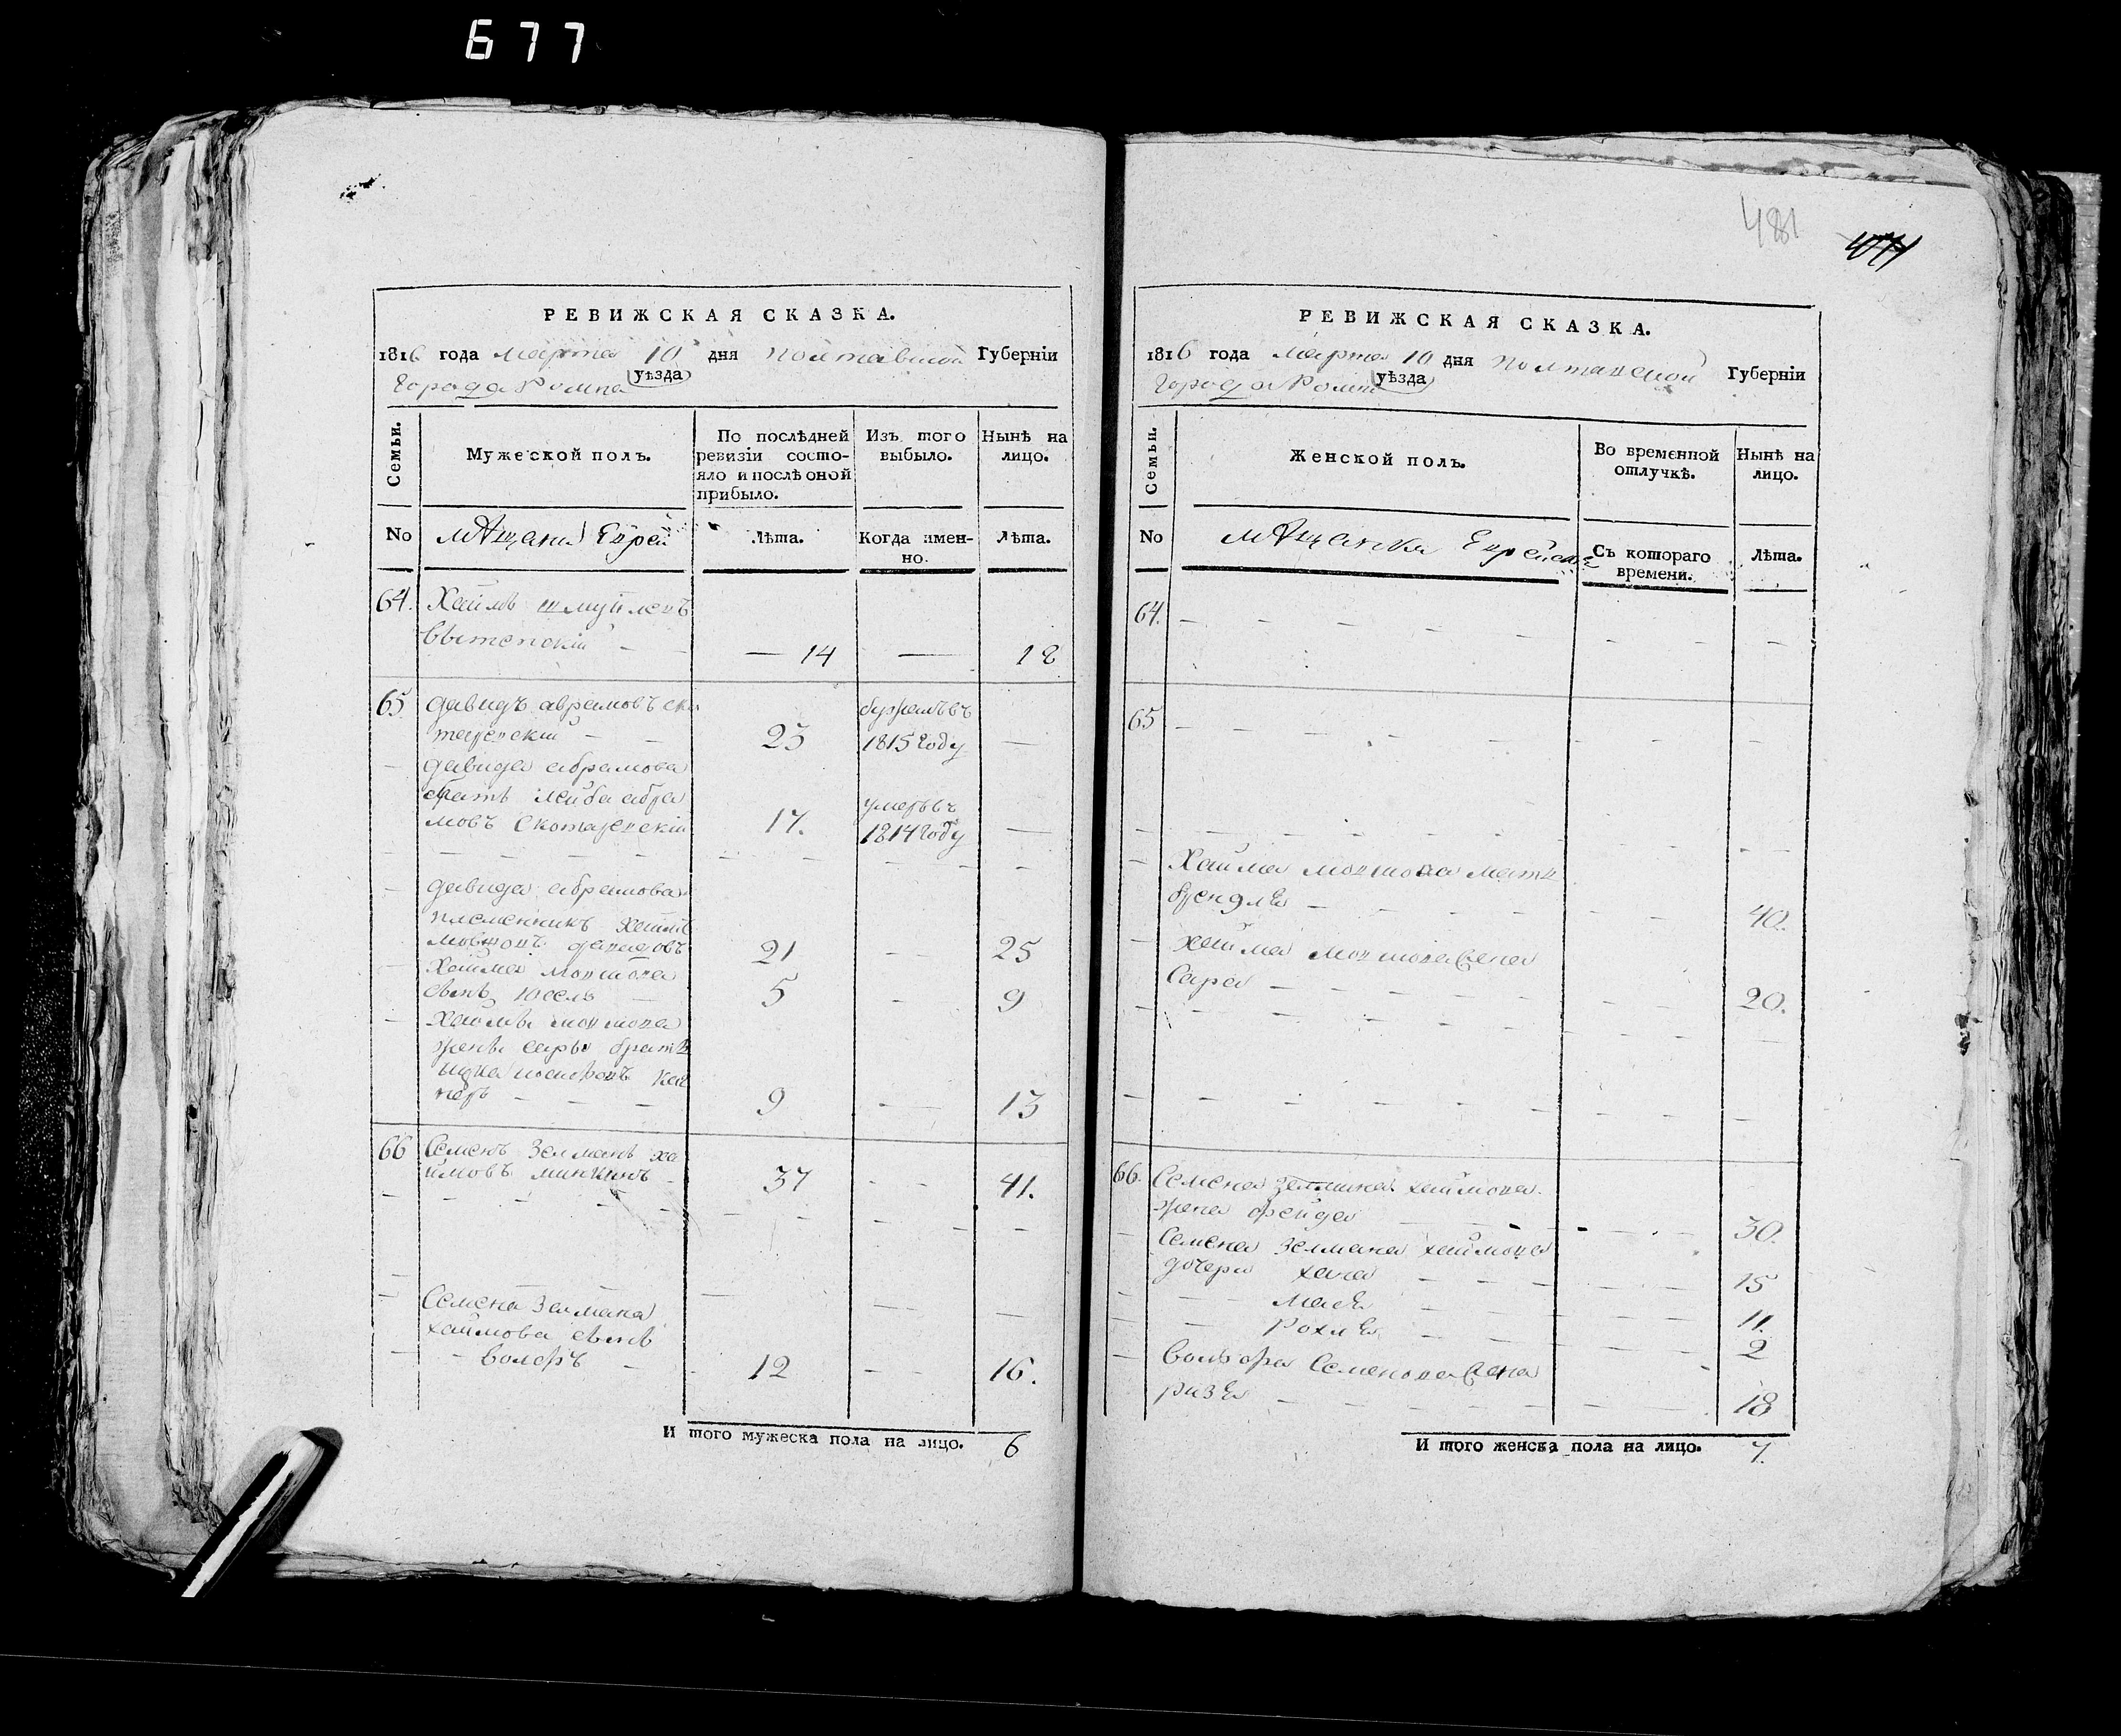 677
481
РЕВИЖСКАЯ СКАЗКА.
1816 года марта 10 дня полтавской Губерніи
Города Ромна уѣзда
Семьи. Мужеской полъ. По послѣдней ревизіи состояло и послѣ оной прибыло. Изъ того выбыло. Нынѣ на лицо.
No мѣщани Евреи Лѣта. Когда имен-но. Лѣта.
64. Хаимъ шмуйлевъ
14 — 18
65 давидъ аврамовъ ско
23 1815 году —
давида абрамова
братъ лейба абра
мовъ Скотаревскій 17. умеръ въ 1814 году —
давида абрамова
племенникъ хаимъ
21 — 25
Хаима мовшова
сынъ Юсель 5 — 9
хаима мовшова
жены сары братъ
9 — 13
66 Семенъ Зелманъ ха
ймовъ минкинъ 37 — 41.
Семена Зелмана
хаимова сынъ
Волфъ 12 — 16.
И того мужеска пола на лицо. 6
РЕВИЖСКАЯ СКАЗКА.
1816 года марта 10 дня полтавской Губерніи
Города Ромна уѣзда
Семьи. Женской полъ. Во временной отлучкѣ. Нынѣ на лицо.
No мѣщанки Еврейские Съ котораго времени. Лѣта.
64. —
65 —
Хаима мовшова мать
брендля — 40.
хаима мовшова жена
Сара — 20.
66. Семена Зелмана хаимова
жена фрейда — 30.
Семена Зелмана хаимова
дочери хана — 15
Мася — 11.
Рохля — 2
Вольфа Семенова жена
ризя — 18
И того женска пола на лицо. 7.